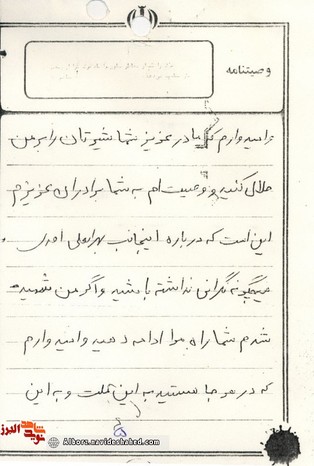 وصیتنامه
و امیدوارم که مادر عزیز شما شیرتان را بر من
حلال کنید و وصیت ام به شما برادران عزیزم
این است که درباره اینجانب بهرامعلی احدی
هیچگونه نگرانی نداشته باشید و اگر من شهید
شدم شما راه مرا ادامه دهید و امیدوارم
که در هر جا هستید به این مملت و به این
نوید شاهد البرز
Alborz.navideshahed.com